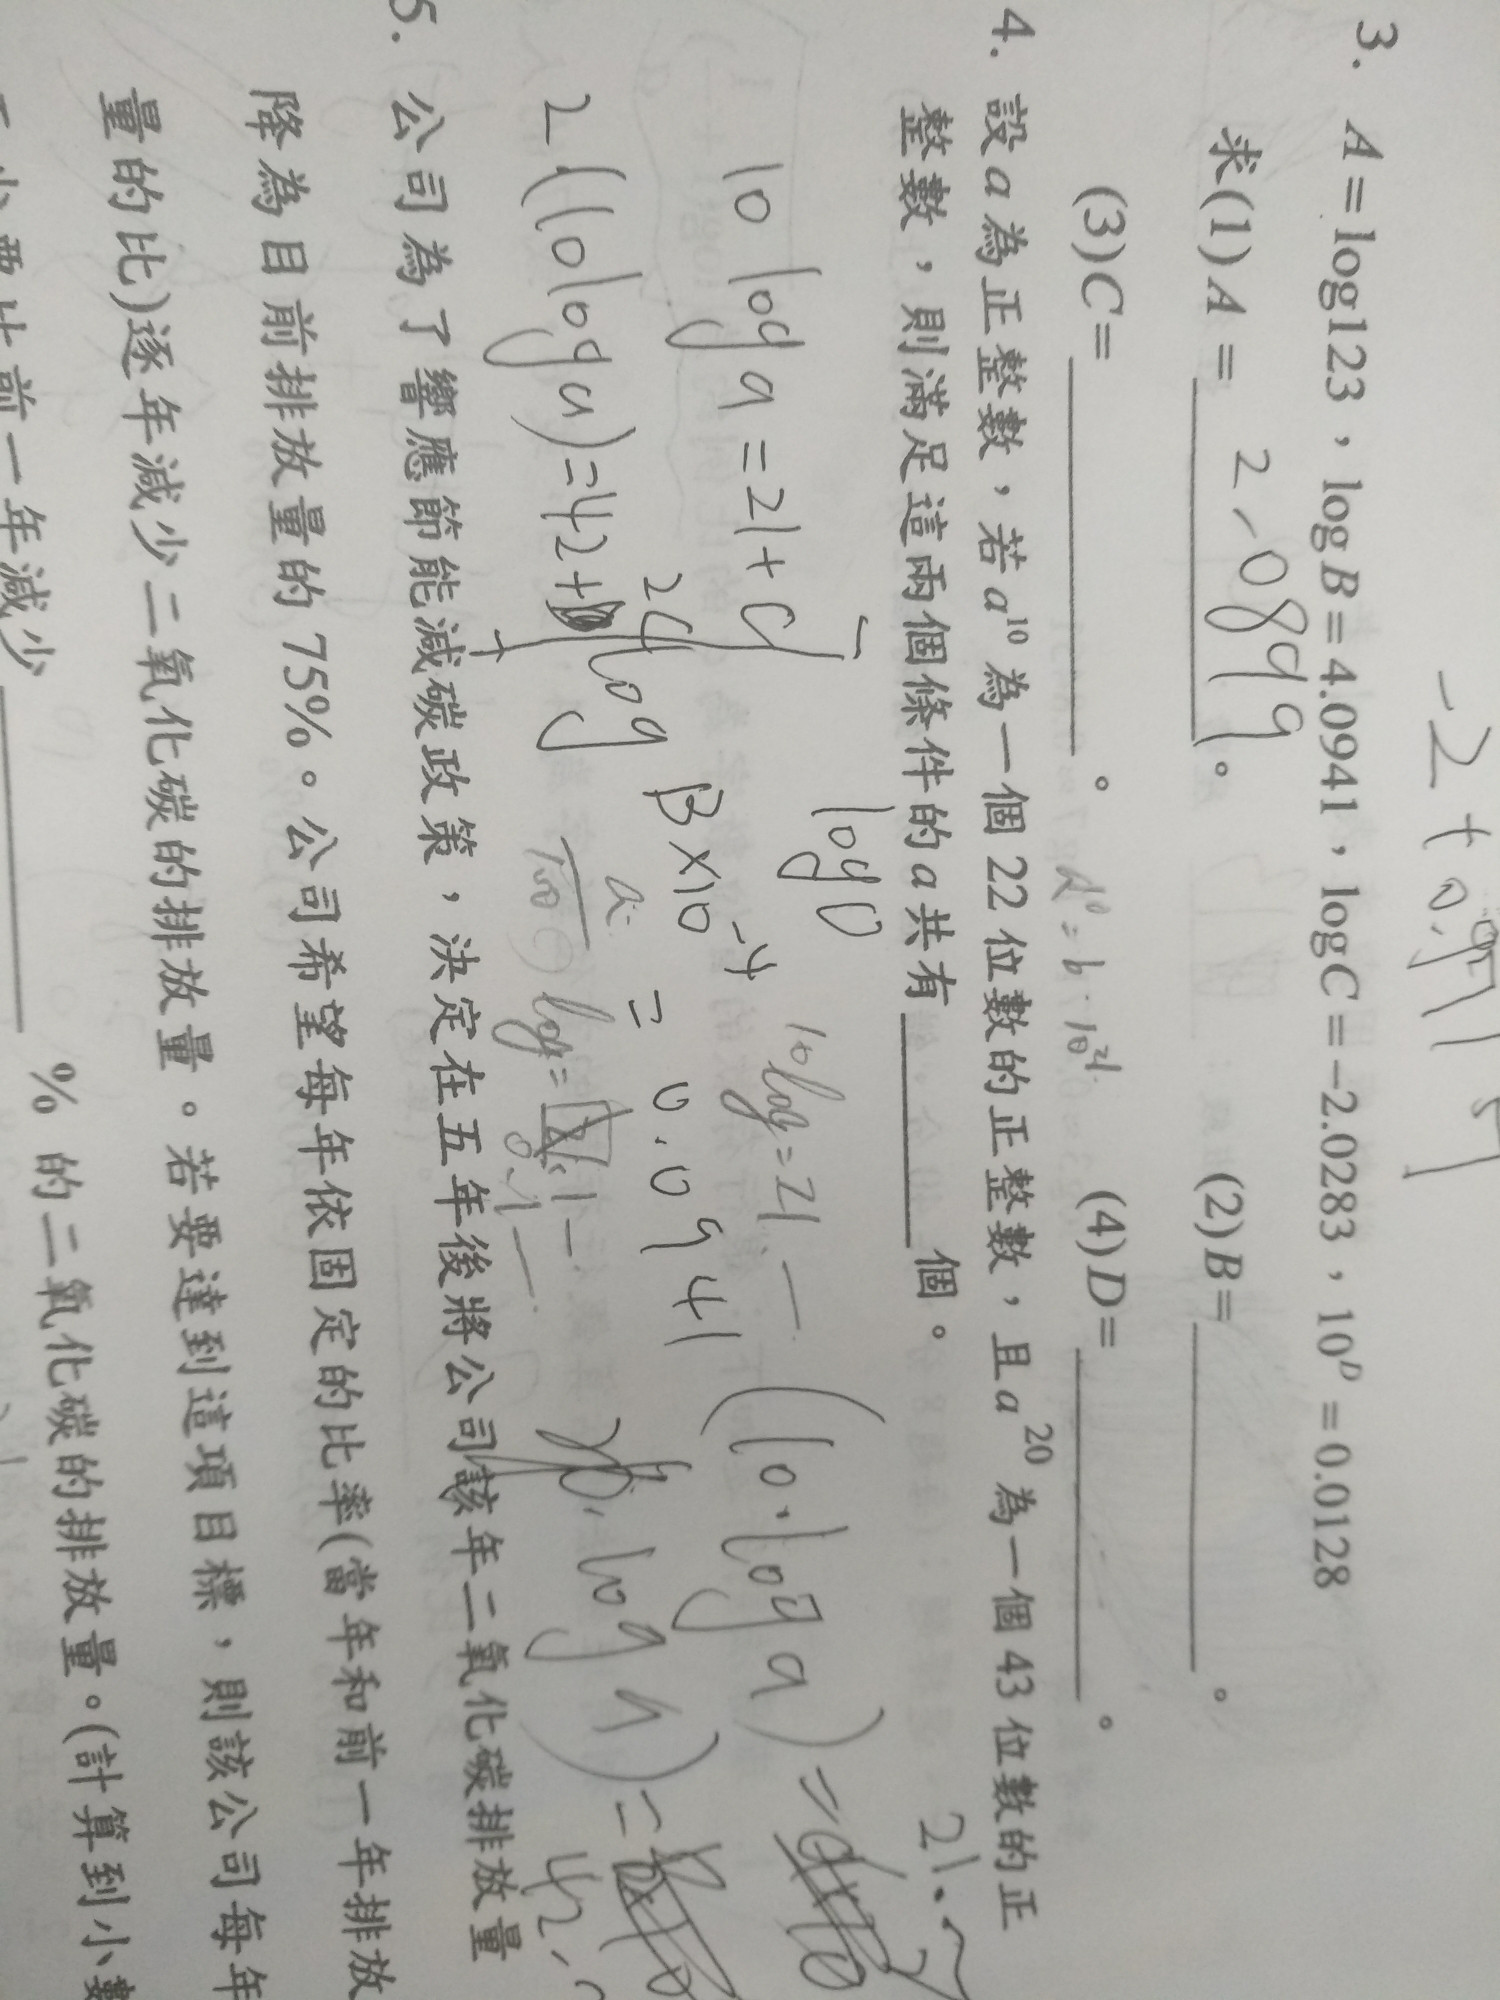 -2+0.971
3. A=log123，log B=4.0941，log C=-2.0283，10^D=0.0128
求(1)A= 2.0899。 (2)B=。
(3)C=。 (4)D=。
4. 設a為正整數，若a^10為一個22位數的正整數，且a^20為一個43位數的正
整數，則滿足這兩個條件的a共有個。
10 log a=21+
10 log=21
(10·log a)=
21.
B×10^-4=0.0941
2(10 log a)=42+
log a)=
42.
5. 公司為了響應節能減碳政策，決定在五年後將公司該年二氧化碳排放量
降為目前排放量的75%。公司希望每年依固定的比率(當年和前一年排放
量的比)逐年減少二氧化碳的排放量。若要達到這項目標，則該公司每年
比前一年減少 % 的二氧化碳的排放量。(計算到小數